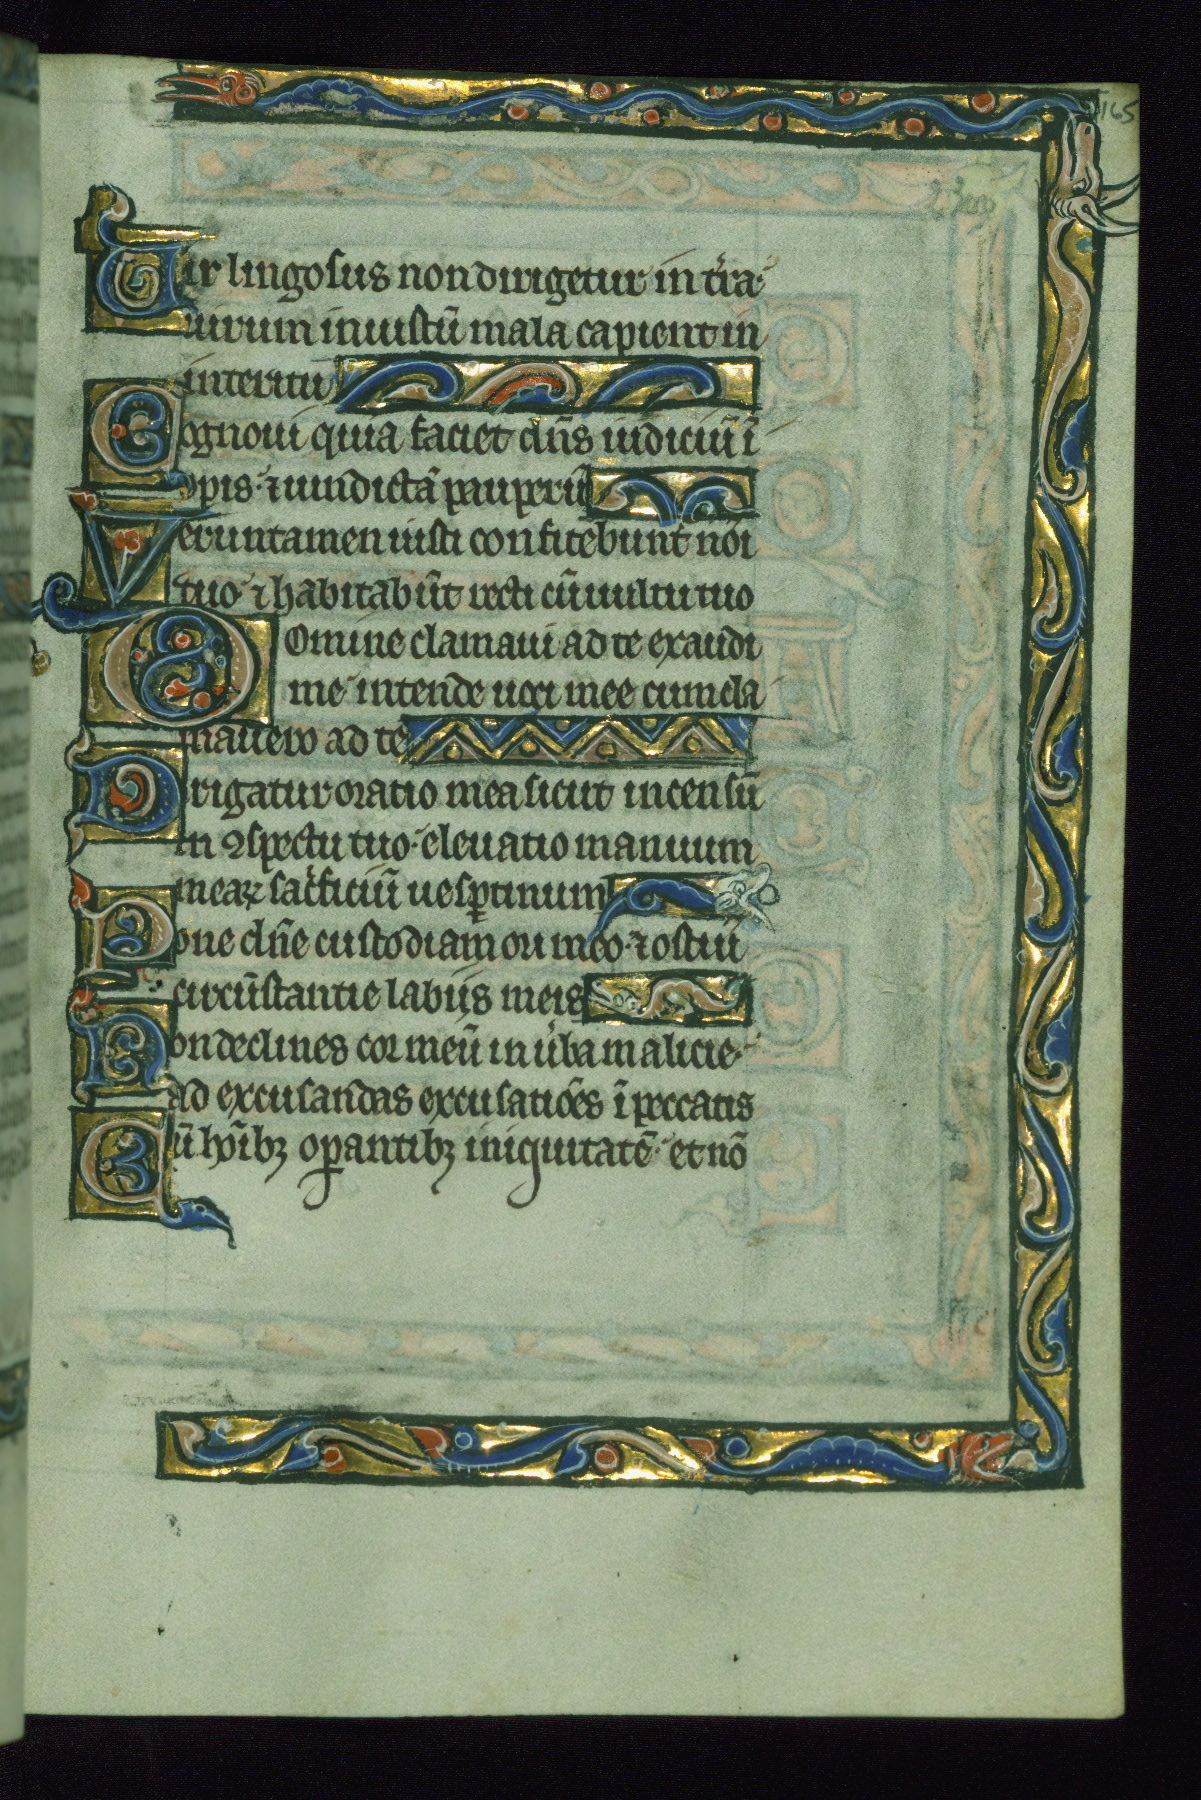 165
Uir lingosus non dirigetur in t̄ra·
uirum iniustū mala capient in
interitu
Cognoui quia faciet dn̄s iudiciū ī
opis· ⁊ uindictā pauperū
Veruntamen iusti confitebunt nōi
tuo· ⁊ habitabūt recti cū uultu tuo
Domine clamaui ad te exaudi
me· intende uoci mee cum cla
mauero ad te
Dirigatur oratio mea sicut incensū
in ꝯspectu tuo· eleuatio manuum
meaꝝ sac̄ficiū uesꝑtinum
Pone dn̄e custodiam ori meo· ⁊ ostiū
circūstantie labijs meis
Non declines cor meū in ūba malicie·
ad excusandas excusatiōes ī peccatis
Cū hōībꝫ oꝑantibꝫ iniquitatē· et nō